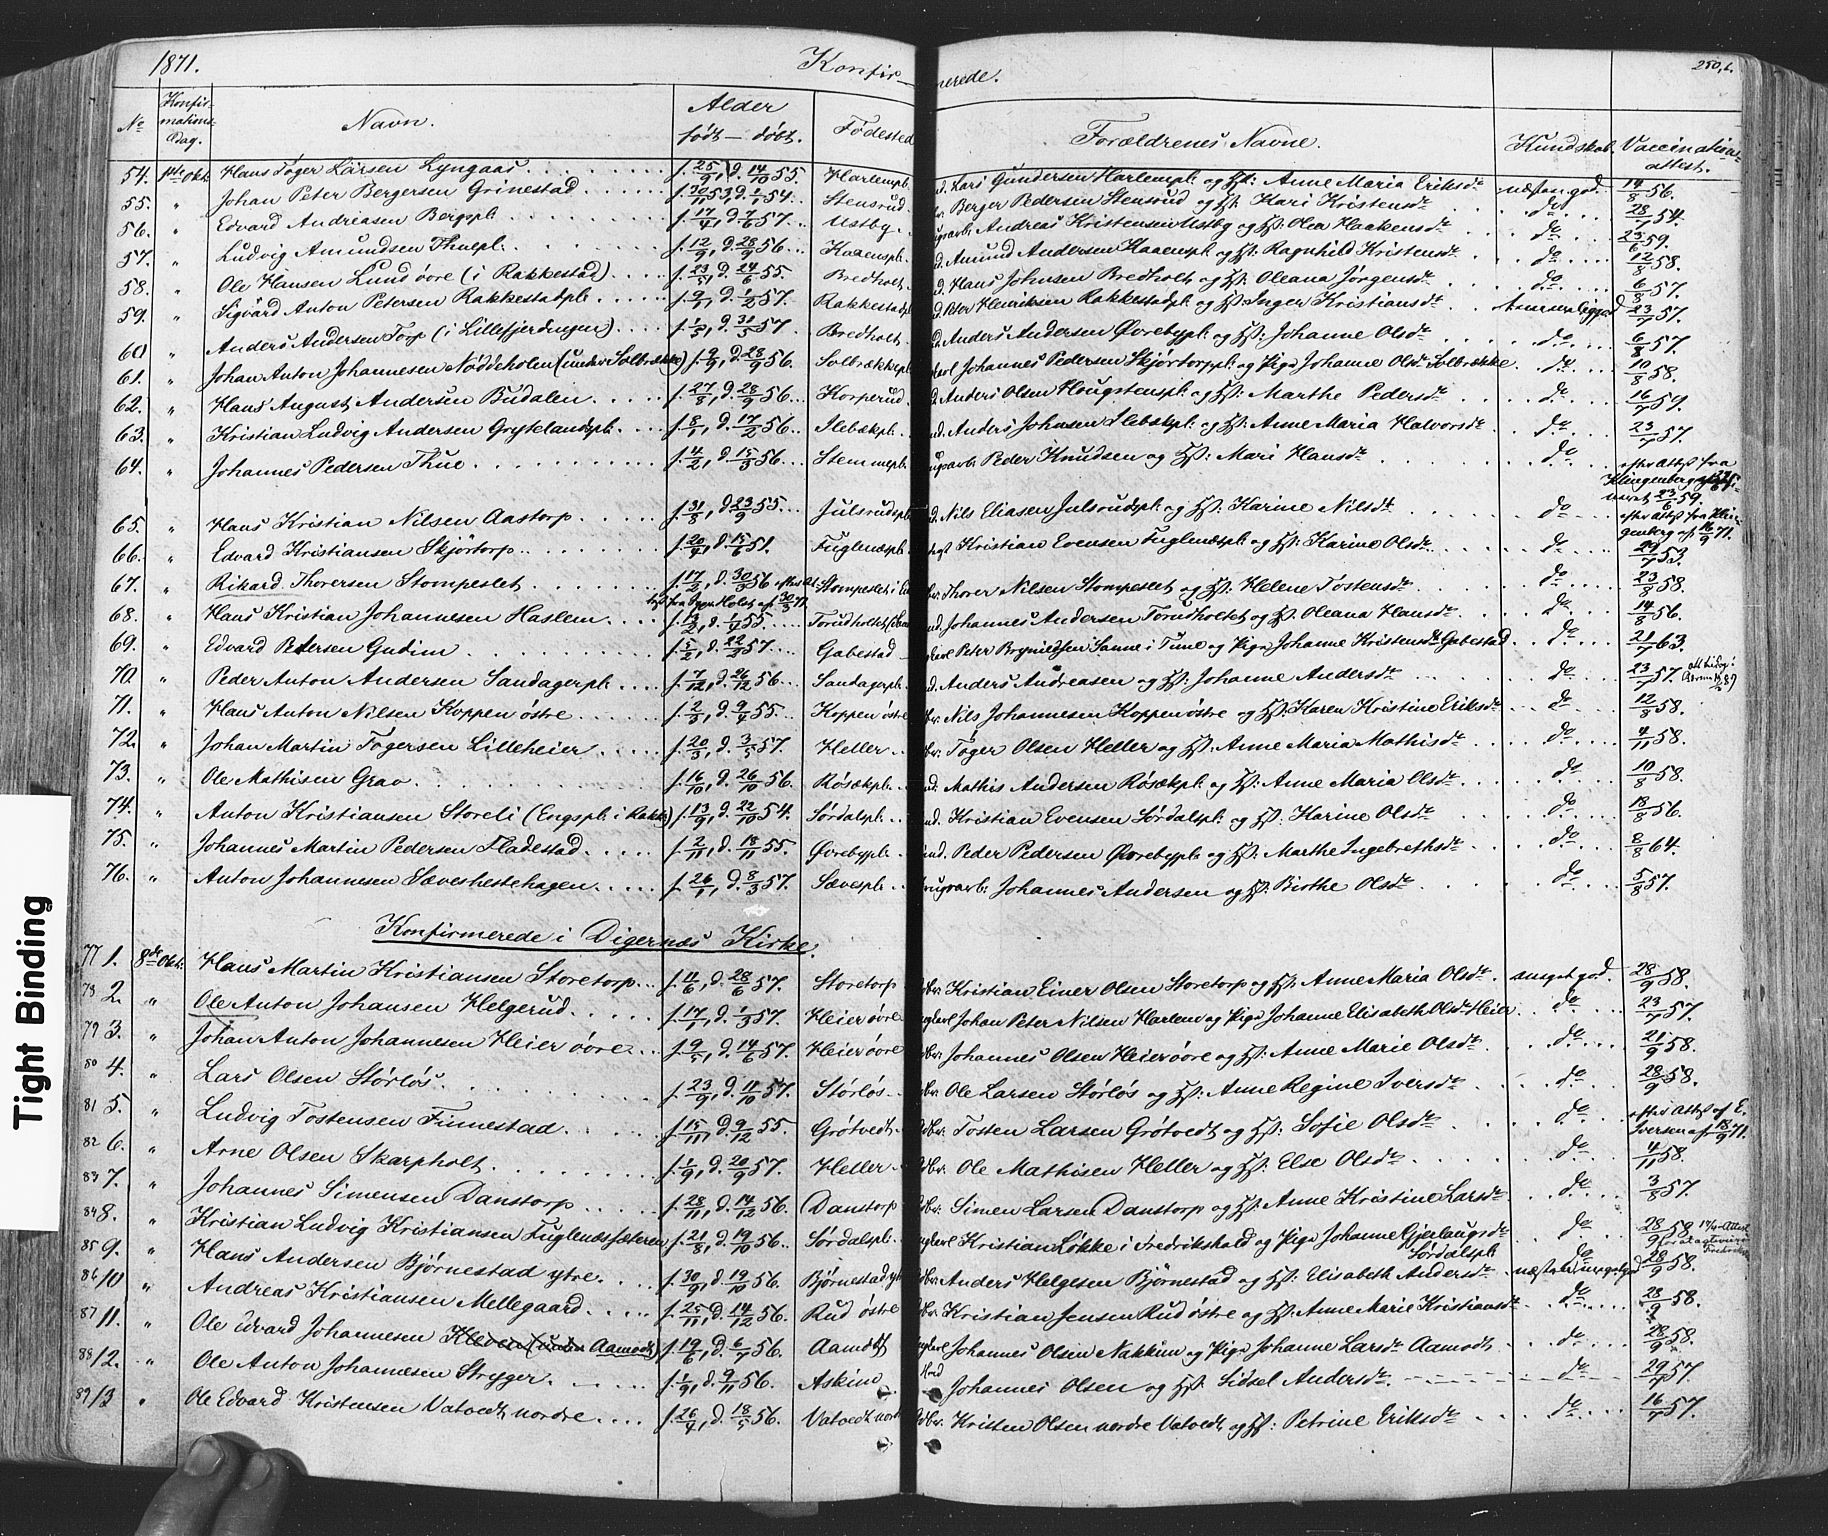 1871.
Konfir-
merede.
250,b.
No
Konfir-
mations
Dag.
Navn.
Alder
født — døbt.
Fødested
Forældrenes Navne.
Kundskab.
Vaccinations-
attest.
54. 1ste Okt. Hans Tøger Larsen Lyngaas f. 25/9, d. 14/10 55 Harlempl. Lars Gundersen Harlempl. og Hst: Anne Maria Eriksdr næsten god. 14/8 56.
55. " Johan Peter Bergersen Grinestad f. 30/11 53, d. 1/1 54. Stensrud. Berger Pedersen Stensrud og Hst: Kari Kristensdr do 28/7 54.
56. " Edvard Andriasen Bergpl. f. 17/4, d. 7/6 57. Ustby. Andreas Kristensen Ustby og Hst: Olea Haakensdr do 23/6 59.
57. " Ludvig Amundsen Thuepl. f. 12/9, d. 28/9 56. Kaaenspl. Amund Andersen Kaaenspl. og Hst: Ragnhild Kristensdr do 12/8 58.
58. " Ole Hansen Lund øvre (i Rakkestad) f. 23/5, d. 24/6 55. Bredholt. Hans Johnsen Bredholt og Hst: Oleana Jørgensdr do 6/8 57.
59. " Sigvard Anton Petersen Rakkestadpl. d. 1/2 57. Rakkestadpl. Peter Henriksen Rakkestadpl. og Hst: Inger Kristiansdr 23/7 57.
60 " Anders Andersen Torp (i Lillefjerdingen) f. 1/3, d. 31/5 57 Bredholt. Anders Andersen Øvrebypl. og Hst: Johanne Olsdr do 6/8 57.
61. " Johan Anton Johannesen Nøddeholen (under Solbrække) f. 9/9, d. 28/9 56. Solbrækkepl. Johannes Pedersen Skjørtorppl. og Pige Johanne Olsdr Solbrække. do 10/8 58.
62. " Hans August Andersen Budalen f. 27/8, d. 28/9 56. Korperud. Anders Olsen Hougstenspl. og Hst: Marthe Pedersdr do 16/7 59.
63. " Kristian Ludvig Andersen Grytelandspl. f. 8/1, d. 17/2 56. Slebækpl. Anders Johnsen Slebækpl. og Hst: Anne Maria Halvorsdr do 23/7 57.
64. " Johannes Pedersen Thue f. 4/2, d. 15/3 56. Stemmepl. Peder Knudsen og Hst: Mari Hansdr do efter Attest fra
Klingenberg
23/6 59.
65. " Hans Kristian Nilsen Aastorp f. 31/8, d. 23/9 55. Julsrudspl. Nils Eliasen Julsrudspl. og Hst: Karine Nilsdr do efter Attest fra Klin-
genberg af 16/9 71.
66. " Edvard Kristiansen Skjørtorp f. 20/4, d. 15/6 51. Fuglenæspl. Kristian Evensen Fuglenæspl. og Hst: Karine Olsdr do 27/7 53.
67. " Rikard Thorersen Stompeslet f. 17/2, d. 30/3 56 efter At- Stompeslet i Thorer Nilsen Stompeslet og Hst: Helene Tostensdr do 23/8 58.
68. " Hans Kristian Johannesen Haslem d. 1/4 55. Torudholtet Johannes Andersen Torudholtet og Hst: Oleana Hansdr do 14/8 56.
69. " Edvard Petersen Gudim d. 22/2 57. Gabestad Peter Brynildsen Sanne i Tune og Pige Johanne Kristensdr Gabestad do 21/7 63.
70 " Peder Anton Andersen Sandagerpl. f. 7/12, d. 26/12 56. Sandagerpl. Anders Andreasen og Hst: Johanne Andersdr do 23/7 57.
71. " Hans Anton Nilsen Koppen østre f. 2/3, d. 9/4 55. Koppen østre Nils Johannesen Koppen østre og Hst: Karen Kristine Eriksdr do 12/8 58.
72. " Johan Martin Tøgersen Lilleheier f. 20/3, d. 3/5 57. Heller. Tøger Olsen Heller og Hst: Anne Maria Mathisdr do 4/11 58.
73. " Ole Mathisen Grav f. 16/10, d. 26/10 56. Røsækpl. Mathis Andersen Røsækpl. og Hst: Anne Maria Olsdr do 10/8 58.
74. " Anton Kristiansen Storeli (Engspl. i Rakk.) f. 13/9, d. 22/10 54. Sørdalspl. Kristian Evensen Sørdalspl. og Hst: Karine Olsdr do 18/8 56.
75. " Johannes Martin Pedersen Fladestad f. 2/11, d. 18/11 55. Øvrebypl. Peder Pedersen Øvrebypl. og Hst: Marthe Ingebrethsdr do 8/8 64.
76. " Anton Johannesen Sæveshestehagen f. 26/1, d. 8/3 57. Sævespl. Johannes Andersen og Hst: Birthe Olsdr do 5/8 57.
Konfirmerede i Digernæs Kirke.
77 1. 8de Okt. Hans Martin Kristiansen Storetorp f. 11/6, d. 28/6 57. Storetorp Kristian Einer Olsen Storetorp og Hst: Anne Maria Olsdr meget god 28/9 58.
78 2. " Ole Anton Johansen Helgerud f. 17/1, d. 1/3 57. Heier øvre Johan Peter Nilsen Harlem og Pige Johanne Elisabeth Olsdr Heier do 23/7 57.
79 3. " Johan Anton Johannesen Heier øvre f. 9/5, d. 14/6 57. Heier øvre Johannes Olsen Heier øvre og Hst: Anne Marie Olsdr do 21/9 58.
80 4. " Lars Olsen Størløs f. 23/9, d. 11/10 57. Størløs Ole Larsen Størløs og Hst: Anne Regine Iversdr do 28/9 58.
81 5. " Ludvig Tostensen Finnestad f. 15/11, d. 9/12 55. Grøtvedt. Tosten Larsen Grøtvedt og Hst: Sofie Olsdr do efter Attest af E.
Iversen af 18/9 71.
82 6. " Arne Olsen Skarpholt f. 1/9, d. 20/9 57. Heller Ole Mathisen Heller og Hst: Else Olsdr do 4/11 58.
83 7. " Johannes Simensen Danstorp f. 28/11, d. 14/12 56. Danstorp Simen Larsen Danstorp og Hst: Anne Kristine Larsdr do 3/8 57.
84 8. " Kristian Ludvig Kristiansen Fuglenæssæteren f. 21/8, d. 19/10 56. Sørdalspl. Kristian Løkke i Fredrikshald og Pige Johanne Gjerlaugsdr
Sørdalspl. do 28/9 58
85 9. " Hans Andersen Bjørnestad ytre f. 30/9, d. 19/10 56. Bjørnestad yt Anders Helgesen Bjørnestad og Hst: Elisabeth Andersdr næsten meget god 28/9 58.
86 10 " Andreas Kristiansen Mellegaard f. 25/11, d. 14/12 56. Rud østre Kristian Jensen Rud østre og Hst: Anne Marie Kristiansdr do 28/9 58.
87 11. " Ole Edvard Johannesen Kleven (under Aamodt) f. 19/6, d. 6/7 56. Aamodt Johannes Olsen Nakkim og Pige Johanne Larsdr Aamodt do 28/9 58.
88 12. " Ole Anton Johannesen Stryger f. 1/9, d. 9/11 56. Askim Johannes Olsen og Hst: Sidsel Andersdr do 29/7 57.
89 13 " Ole Edvard Kristensen Vatvedt nordre f. 26/4, d. 18/5 56. Vatvedt nord Kristen Olsen nordre Vatvedt og Hst: Petrine Eriksdr do 16/7 57.
Tight Binding